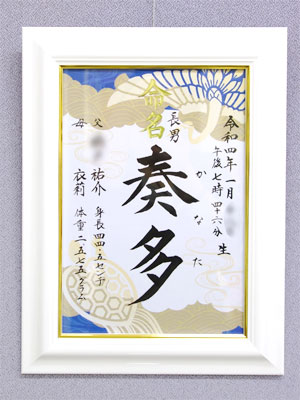 命名
令和四年一月
午後七時四十六分 生
長男
かなた
奏多
父 祐介
母 衣莉
身長四四・五センチ
体重二五七五グラム